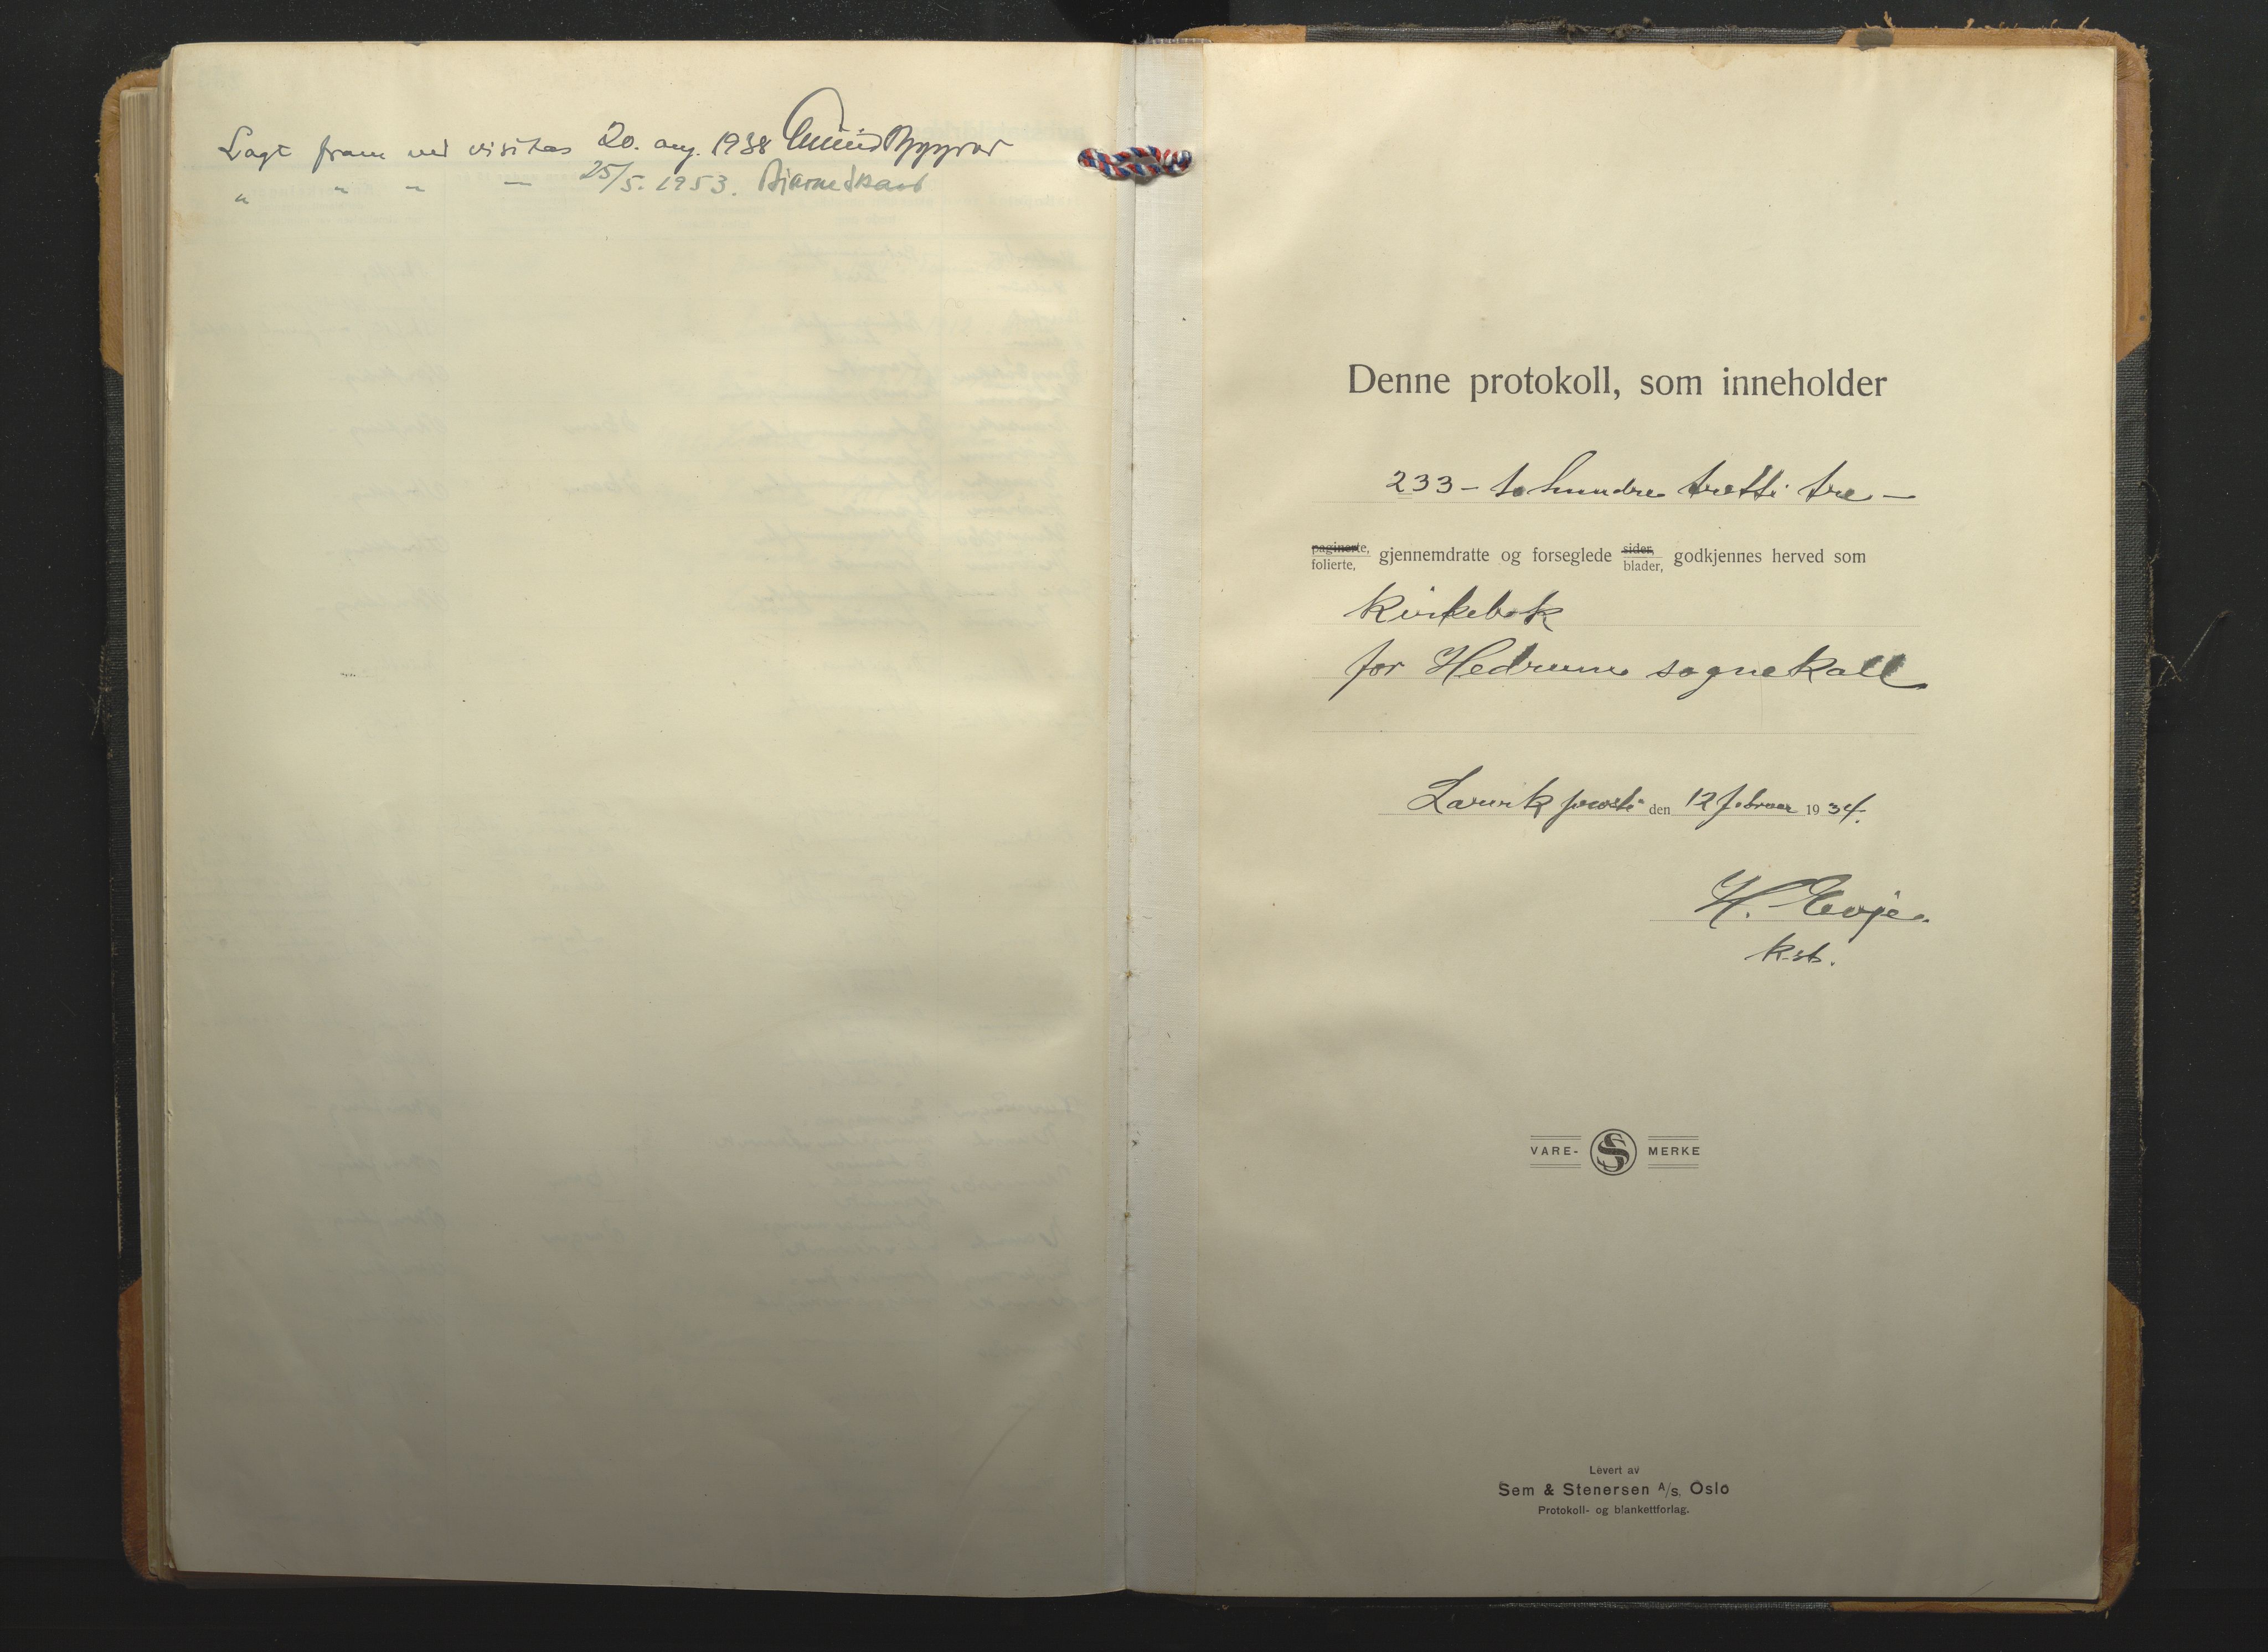 Lagt fram ved visitas 20. aug. 1938
" " " — 25/5. 1953. Bjarne Skard
Denne protokoll, som inneholder
233 – to hundre tretti tre –
paginerte,
folierte, gjennemdratte og forseglede sider,
blader, godkjennes herved som
kirkebok
for Hedrum sognekall
Larvik prosti den 12 februar 1934.
H. Evje.
k.st.
VARE- S MERKE
Levert av
Sem & Stenersen A/S. Oslo
Protokoll- og blankettforlag.